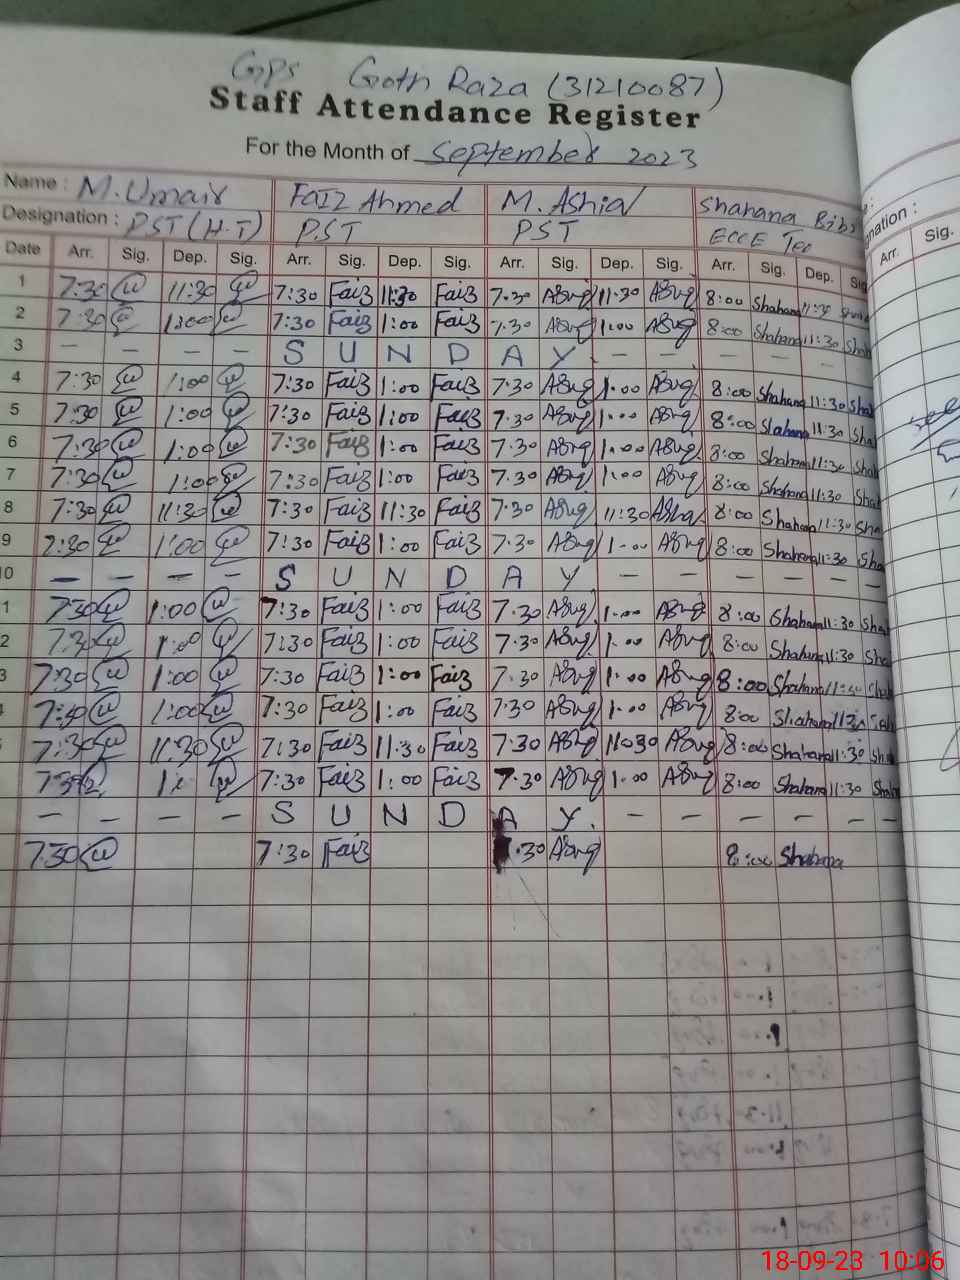 GPS Goth Raza (31210087)
Staff Attendance Register
For the Month of September 2023
Name : M. Umair Faiz Ahmed M. Ashia Shahana Bibi
Designation : PST (H.T) PST PST ECCE Tea
Date Arr. Sig. Dep. Sig. Arr. Sig. Dep. Sig. Arr. Sig. Dep. Sig. Arr. Sig. Dep. Sig
1 7:30 11:30 7:30 Faiz 11:30 Faiz 7.30 11.30 8:00 Shahana 11:30
2 7:30 1:00 7:30 Faiz 1:00 Faiz 7.30 1.00 8:00 Shahana 11:30 Shah
3 - - - - S U N D A Y - - - - -
4 7:30 1:00 7:30 Faiz 1:00 Faiz 7.30 1.00 8:00 Shahana 11:30 Sha
5 7:30 1:00 7:30 Faiz 1:00 Faiz 7.30 1.00 8:00 Shahana 11:30 Sha
6 7:30 1:00 7:30 Faiz 1:00 Faiz 7.30 1.00 8:00 Shahana 11:30 Sha
7 7:30 1:00 7:30 Faiz 1:00 Faiz 7.30 1.00 8:00 Shahana 11:30 Sha
8 7:30 11:30 7:30 Faiz 11:30 Faiz 7.30 11:30 8:00 Shahana 11:30 Sha
9 7:30 1:00 7:30 Faiz 1:00 Faiz 7.30 1.00 8:00 Shahana 11:30 Sha
10 - - - - S U N D A Y - - - - - -
1 7:30 1:00 7:30 Faiz 1:00 Faiz 7.30 1.00 8:00 Shahana 11:30 Sha
2 7:30 1:00 7:30 Faiz 1:00 Faiz 7.30 1.00 8:00 Shahana 11:30 Sha
3 7:30 1:00 7:30 Faiz 1:00 Faiz 7.30 1.00 8:00 Shahana 11:30 Shah
7:30 1:00 7:30 Faiz 1:00 Faiz 7.30 1.00 8:00 Shahana 11:30
7:30 11:30 7:30 Faiz 11:30 Faiz 7.30 11030 8:00 Shahana 11:30 Sha
7:30 7:30 Faiz 1:00 Faiz 7.30 1.00 8:00 Shahana 11:30 Shaha
- - - - S U N D A Y. - - - - - -
7:30 7:30 Faiz 7.30 8:00 Shahana
nation :
Arr. Sig.
18-09-23 10:06